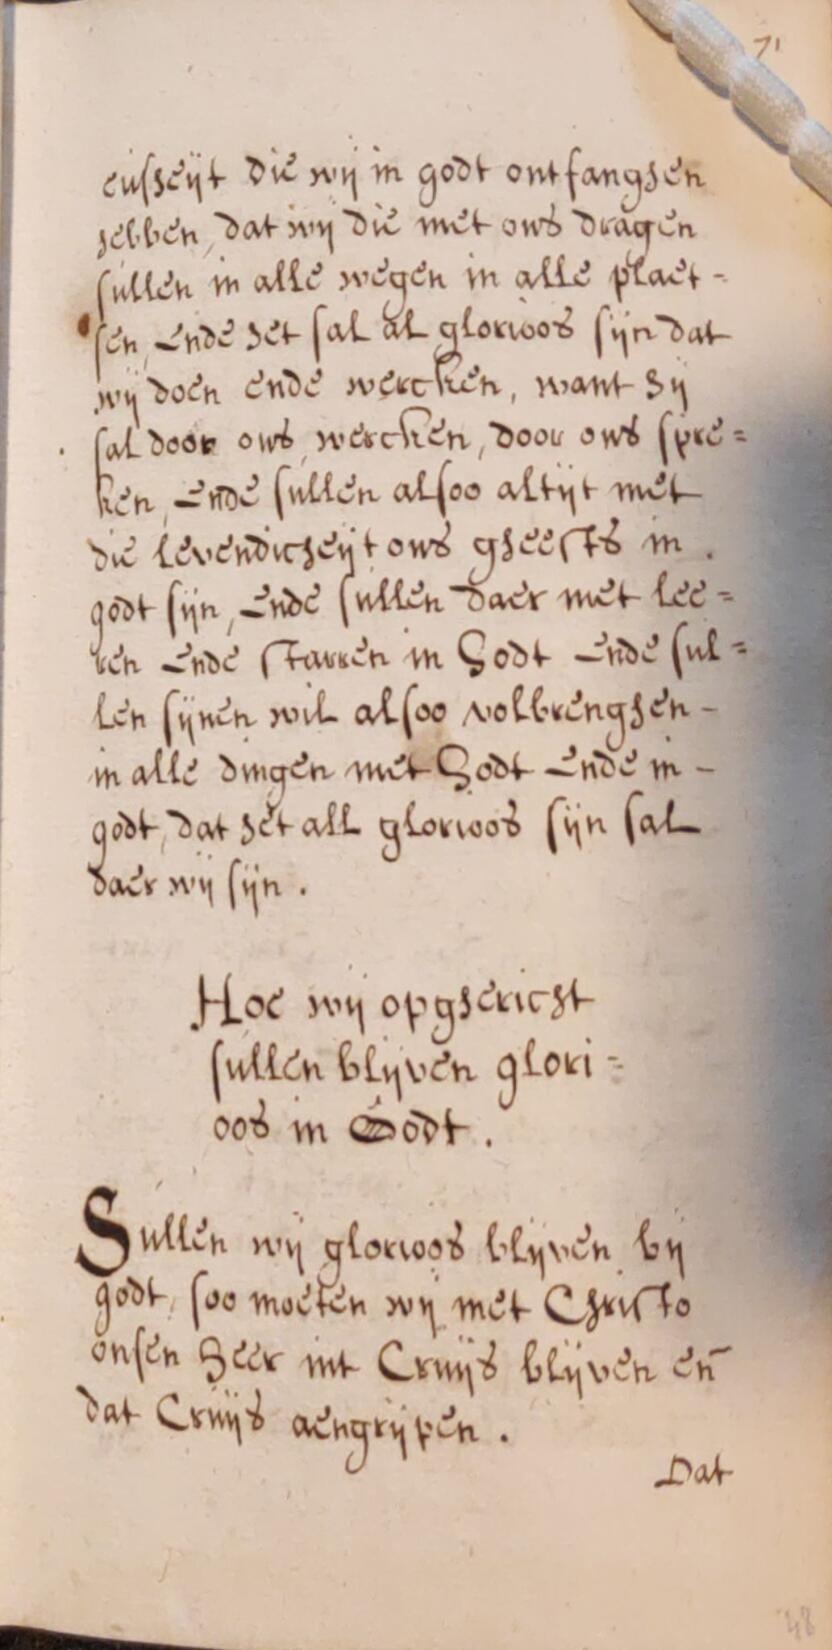 71
cusheijt die wij in godt ontfanghen
hebben, dat wij die met ons dragen
sullen in alle wegen in alle plaet-
sen, Ende het sal al glorioos sijn dat
wij doen ende wercken, want hij
sal door ons wercken, door ons spre=
ken, Ende sullen alsoo altijt met
die levendicheijt ons gheests in
godt sijn, Ende sullen daer met lee=
ren Ende starren in Godt Ende sul=
len sijnen wil alsoo volbrenghen-
in alle dingen met Godt Ende in-
godt, dat het all glorioos sijn sal
daer wij sijn.
Hoe wij opghericht
sullen blijven glori=
oos in Godt.
Sullen wij glorioos blijven bij
godt, soo moeten wij met Christo
onsen Heer int Cruijs blijven en̄
dat Cruijs aengrijpen.
Dat
48